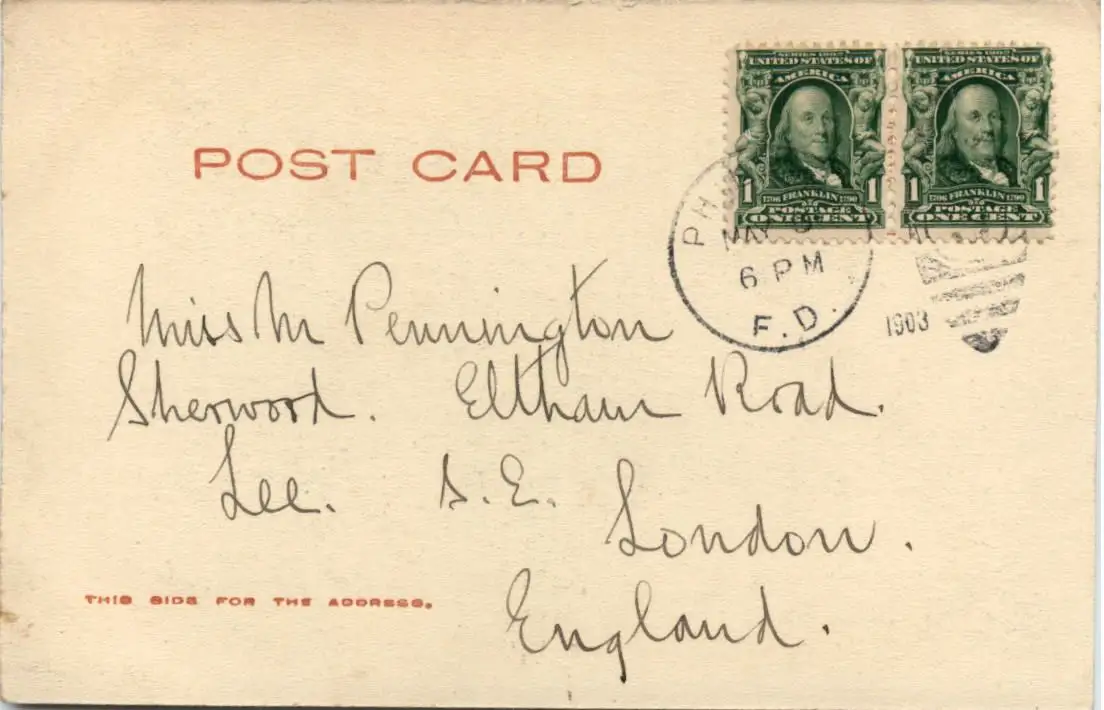 SERIES 1902
UNITED STATES OF
AMERICA
1 1706 FRANKLIN 1790 1
POSTAGE
ONE CENT
SERIES 1902
UNITED STATES OF
AMERICA
1 1706 FRANKLIN 1790 1
POSTAGE
ONE CENT
POST CARD
PH
MAY
6 PM
F.D.
1903
Miss M Pennington
Sherwood. Eltham Road.
Lee. S.E.
London.
England.
THIS SIDE FOR THE ADDRESS.